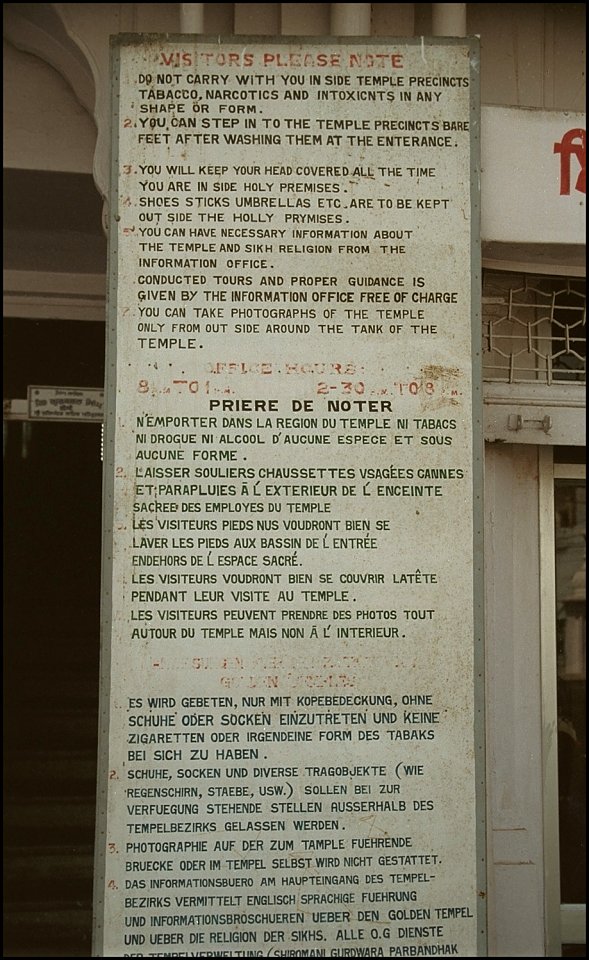 VISITORS PLEASE NOTE
DO NOT CARRY WITH YOU IN SIDE TEMPLE PRECINCTS
TABACCO, NARCOTICS AND INTOXICNTS IN ANY
SHAPE OR FORM.
2. YOU CAN STEP IN TO THE TEMPLE PRECINCTS BARE
FEET AFTER WASHING THEM AT THE ENTERANCE.
3. YOU WILL KEEP YOUR HEAD COVERED ALL THE TIME
YOU ARE IN SIDE HOLY PREMISES.
4. SHOES STICKS UMBRELLAS ETC. ARE TO BE KEPT
OUT SIDE THE HOLLY PRYMISES.
5. YOU CAN HAVE NECESSARY INFORMATION ABOUT
THE TEMPLE AND SIKH RELIGION FROM THE
INFORMATION OFFICE.
CONDUCTED TOURS AND PROPER GUIDANCE IS
GIVEN BY THE INFORMATION OFFICE FREE OF CHARGE
7. YOU CAN TAKE PHOTOGRAPHS OF THE TEMPLE
ONLY FROM OUT SIDE AROUND THE TANK OF THE
TEMPLE.
OFFICE HOURS:
8 TO 1 2-30 TO 8
PRIERE DE NOTER
1. N'EMPORTER DANS LA REGION DU TEMPLE NI TABACS
NI DROGUE NI ALCOOL D'AUCUNE ESPECE ET SOUS
AUCUNE FORME.
2. LAISSER SOULIERS CHAUSSETTES VSAGÉES CANNES
ET PARAPLUIES Ā L'EXTERIEUR DE L' ENCEINTE
SACREE DES EMPLOYES DU TEMPLE
LES VISITEURS PIEDS NUS VOUDRONT BIEN SE
LAVER LES PIEDS AUX BASSIN DE L'ENTRÉE
ENDEHORS DE L'ESPACE SACRÉ.
LES VISITEURS VOUDRONT BIEN SE COUVRIR LATÊTE
PENDANT LEUR VISITE AU TEMPLE.
LES VISITEURS PEUVENT PRENDRE DES PHOTOS TOUT
AUTOUR DU TEMPLE MAIS NON Ā L' INTERIEUR.
ES WIRD GEBETEN, NUR MIT KOPEBEDECKUNG, OHNE
SCHUHE ODER SOCKEN EINZUTRETEN UND KEINE
ZIGARETTEN ODER IRGENDEINE FORM DES TABAKS
BEI SICH ZU HABEN.
2. SCHUHE, SOCKEN UND DIVERSE TRAGOBJEKTE (WIE
REGENSCHIRN, STAEBE, USW.) SOLLEN BEI ZUR
VERFUEGUNG STEHENDE STELLEN AUSSERHALB DES
TEMPELBEZIRKS GELASSEN WERDEN.
3. PHOTOGRAPHIE AUF DER ZUM TAMPLE FUEHRENDE
BRUECKE ODER IM TEMPEL SELBST WIRD NICHT GESTATTET.
4. DAS INFORMATIONSBUERO AM HAUPTEINGANG DES TEMPEL-
BEZIRKS VERMITTELT ENGLISCH SPRACHIGE FUEHRUNG
UND INFORMATIONSBROSCHUEREN UEBER DEN GOLDEN TEMPEL
UND UEBER DIE RELIGION DER SIKHS. ALLE O.G DIENSTE
DER TEMPELVERWELTUNG (SHIROMANI GURDWARA PARBANDHAK